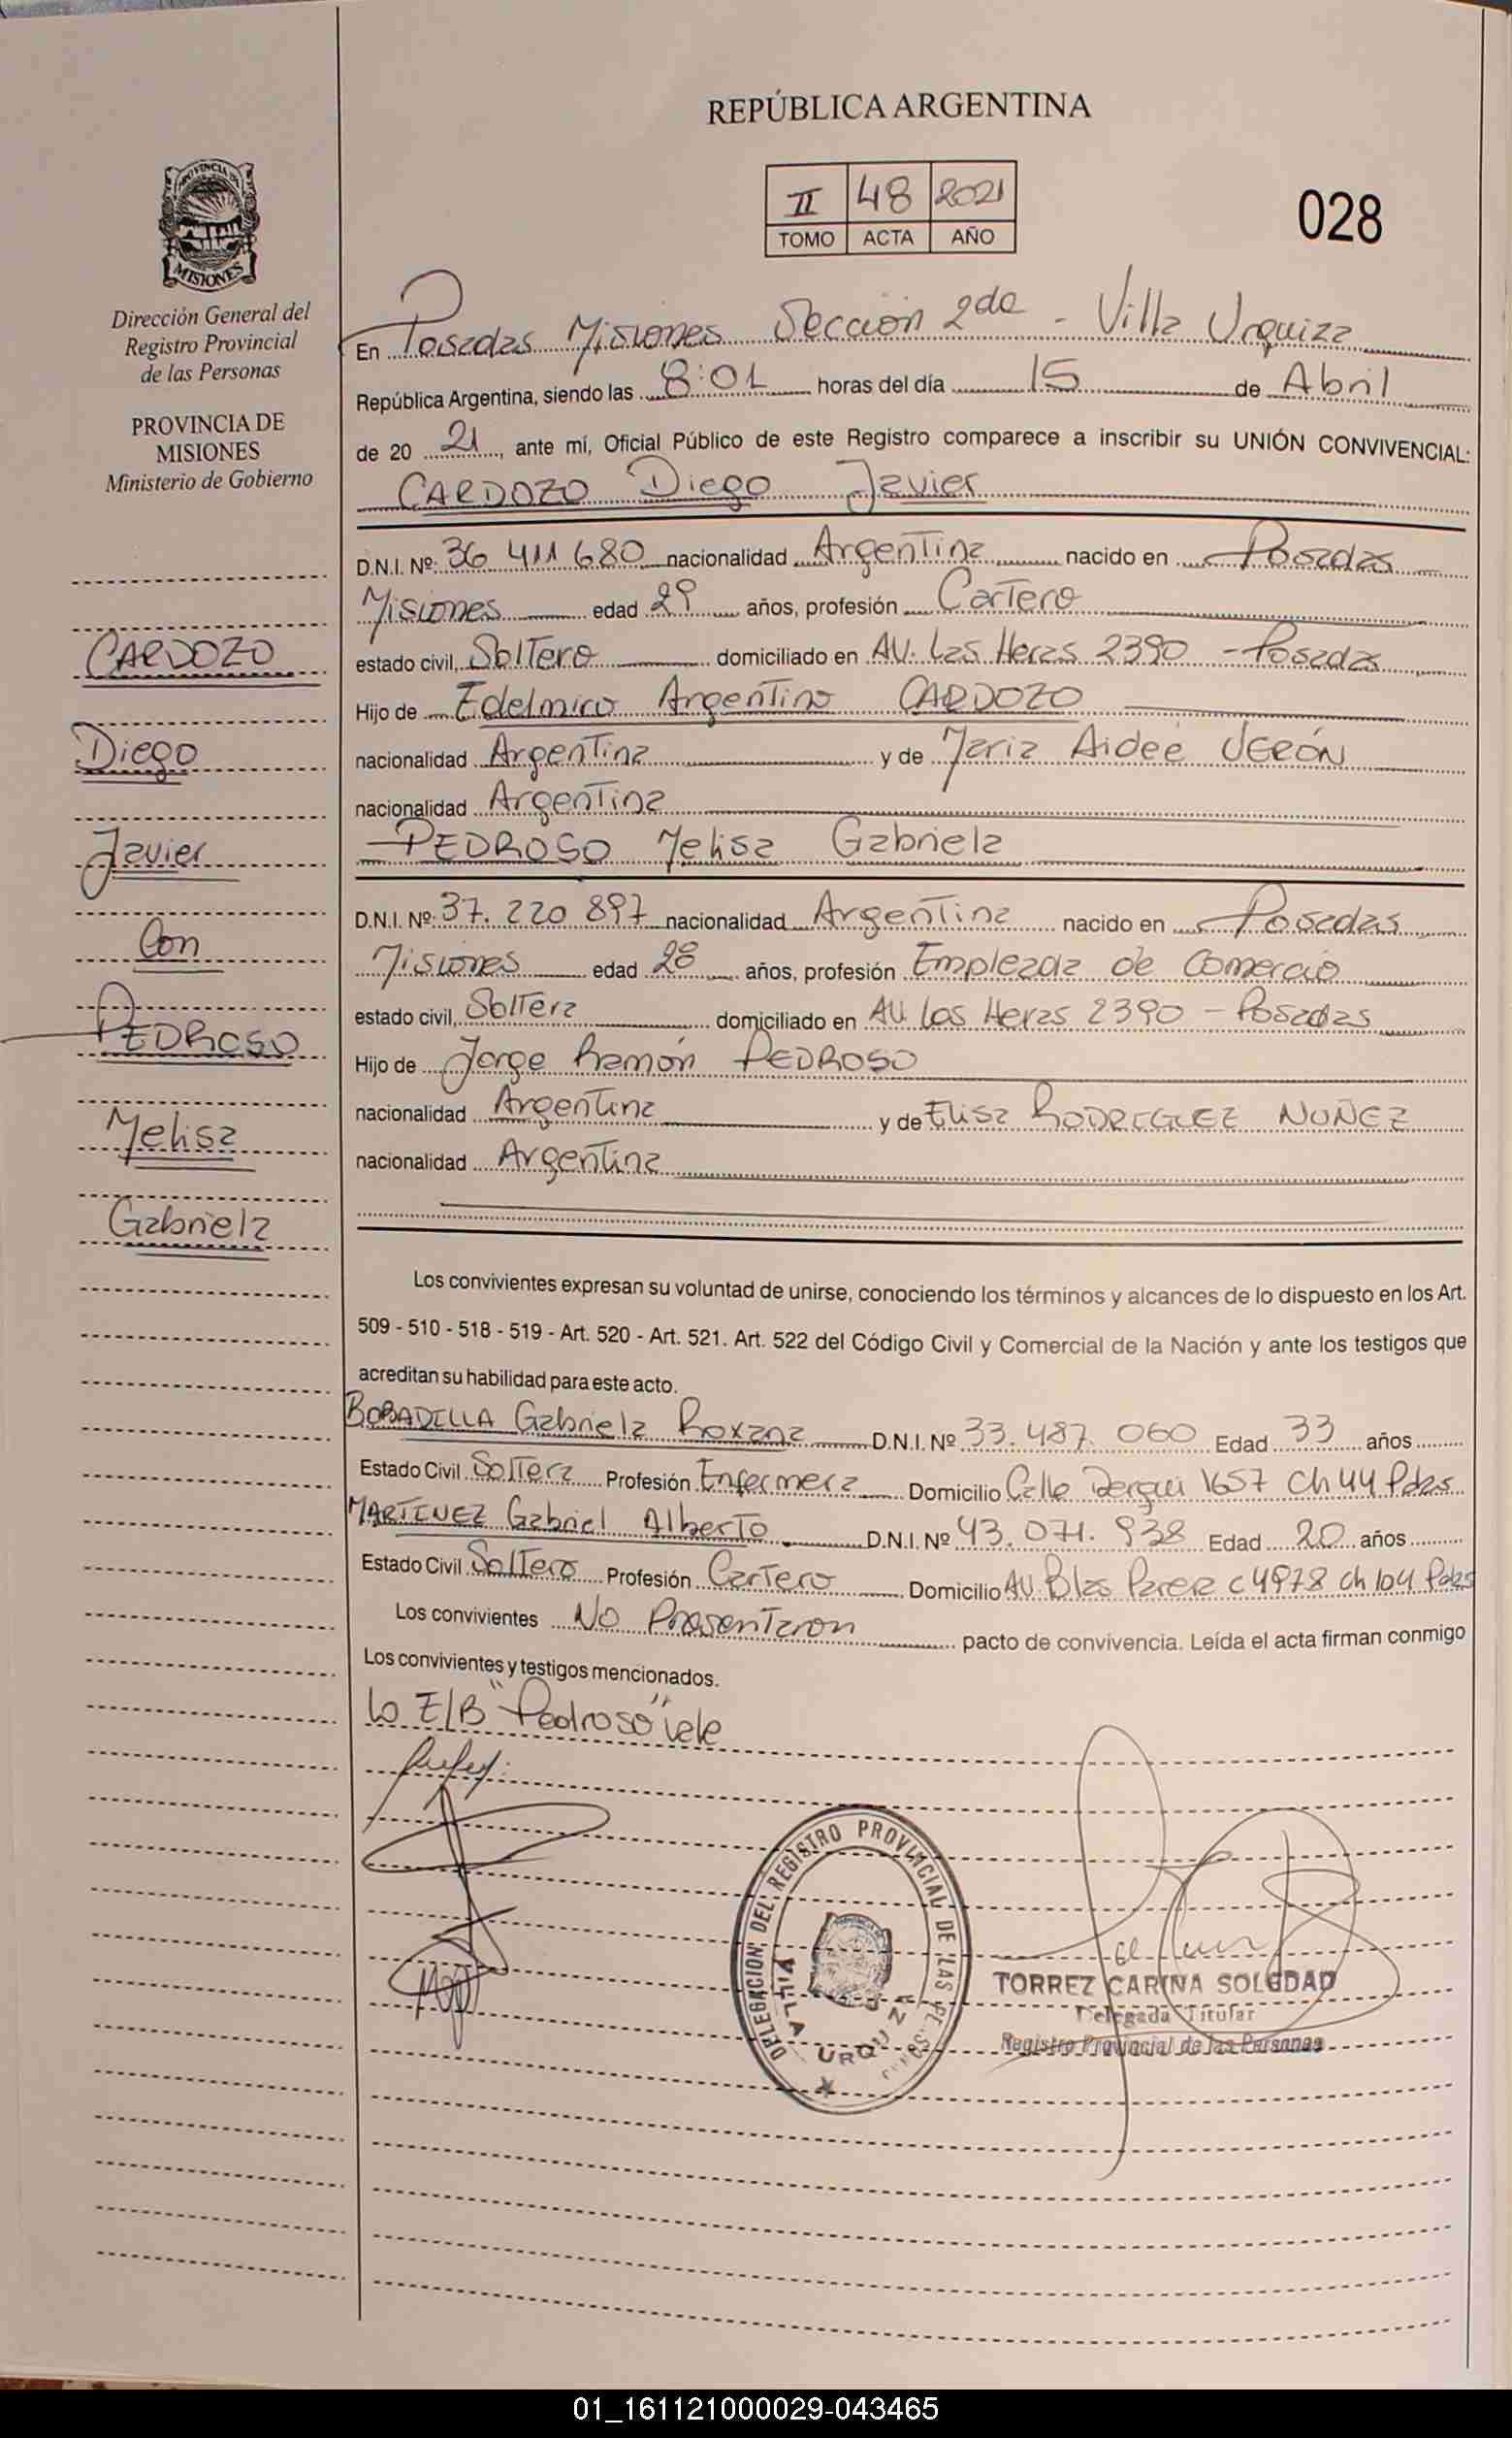 REPÚBLICA ARGENTINA
II 48 2021
TOMO ACTA AÑO
028
PROVINCIA DE
MISIONES
Dirección General del
Registro Provincial
de las Personas
PROVINCIA DE
MISIONES
Ministerio de Gobierno
CARDOZO
Diego
Javier
Con
PEDROSO
Melisa
Gabriela
En Posadas Misiones Sección 2da - Villa Urquiza
República Argentina, siendo las 8:01 horas del día 15 de Abril
de 20 21, ante mí, Oficial Público de este Registro comparece a inscribir su UNIÓN CONVIVENCIAL:
CARDOZO Diego Javier
D.N.I. Nº: 36 411 680 nacionalidad Argentina nacido en Posadas
Misiones edad 29 años, profesión Cartero
estado civil, Soltero domiciliado en AV. Las Heras 2390 - Posadas
Hijo de Edelmiro Argentino CARDOZO
nacionalidad Argentina y de Maria Aideé VERÓN
nacionalidad Argentina
PEDROSO Melisa Gabriela
D.N.I. Nº: 37. 220 897 nacionalidad Argentina nacido en Posadas
Misiones edad 28 años, profesión Empleada de Comercio
estado civil, Soltera domiciliado en AV. Las Heras 2390 - Posadas
Hijo de Jorge Ramón PEDROSO
nacionalidad Argentina y de Elisa RODRIGUEZ NUÑEZ
nacionalidad Argentina
Los convivientes expresan su voluntad de unirse, conociendo los términos y alcances de lo dispuesto en los Art.
509 - 510 - 518 - 519 - Art. 520 - Art. 521. Art. 522 del Código Civil y Comercial de la Nación y ante los testigos que
acreditan su habilidad para este acto.
BOBADILLA Gabriela Roxana D.N.I. Nº 33. 487. 060 Edad 33 años
Estado Civil Soltera Profesión Enfermera Domicilio Calle Derqui 1657 Ch 44 Pdas
MARTINEZ Gabriel Alberto D.N.I. Nº 43. 071. 938 Edad 20 años
Estado Civil Soltero Profesión Cartero Domicilio AV. Blas Parera C 4978 ch 104 Pdas
Los convivientes No Presentaron pacto de convivencia. Leída el acta firman conmigo
Los convivientes y testigos mencionados.
Lo E/B "Pedroso" vale
DELEGACION DEL REGISTRO PROVINCIAL DE LAS
VILLA URQUIZA
TORREZ CARINA SOLEDAD
Delegada Titular
Registro Provincial de las Personas
01_161121000029-043465